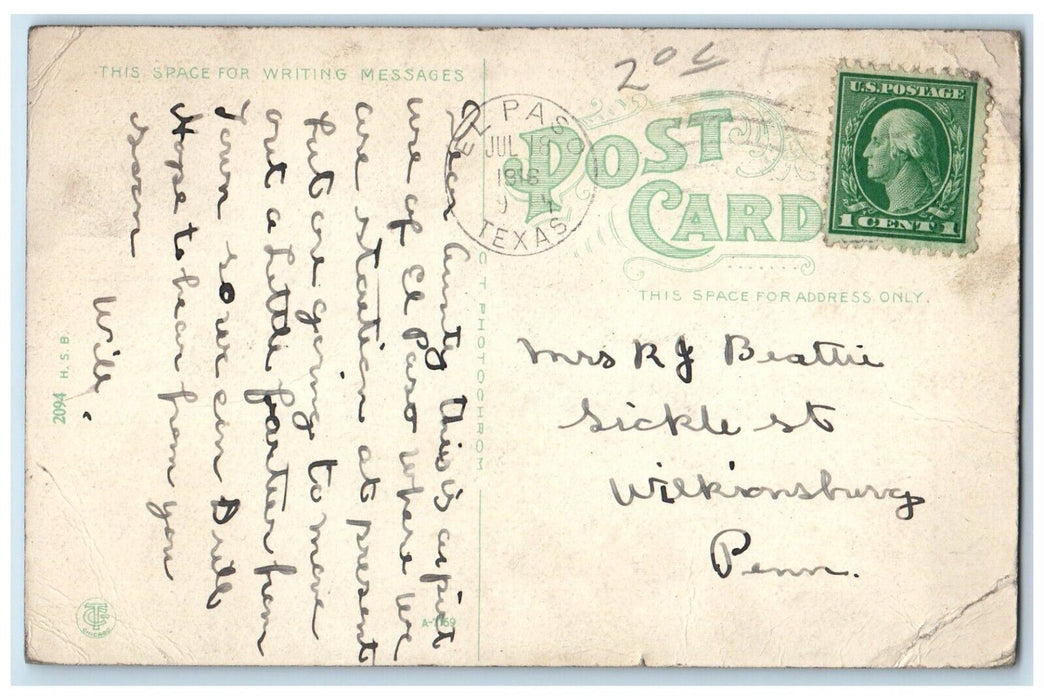 THIS SPACE FOR WRITING MESSAGES
Dear Aunty this is a pict
ure of El Paso where we
are station at present
but are going to move
out a little farther from
Town so we can Drill
Hope to hear from you
soon
Will.
2094 H. S. B.
CT PHOTOCHROM
A-7169
CHICAGO
EL PASO
JUL 18
1916
TEXAS
20¢
POST
CARD
U.S. POSTAGE
1 CENT 1
THIS SPACE FOR ADDRESS ONLY.
Mrs R J Beattie
Sickle st
Wilkinsburg
Penn.